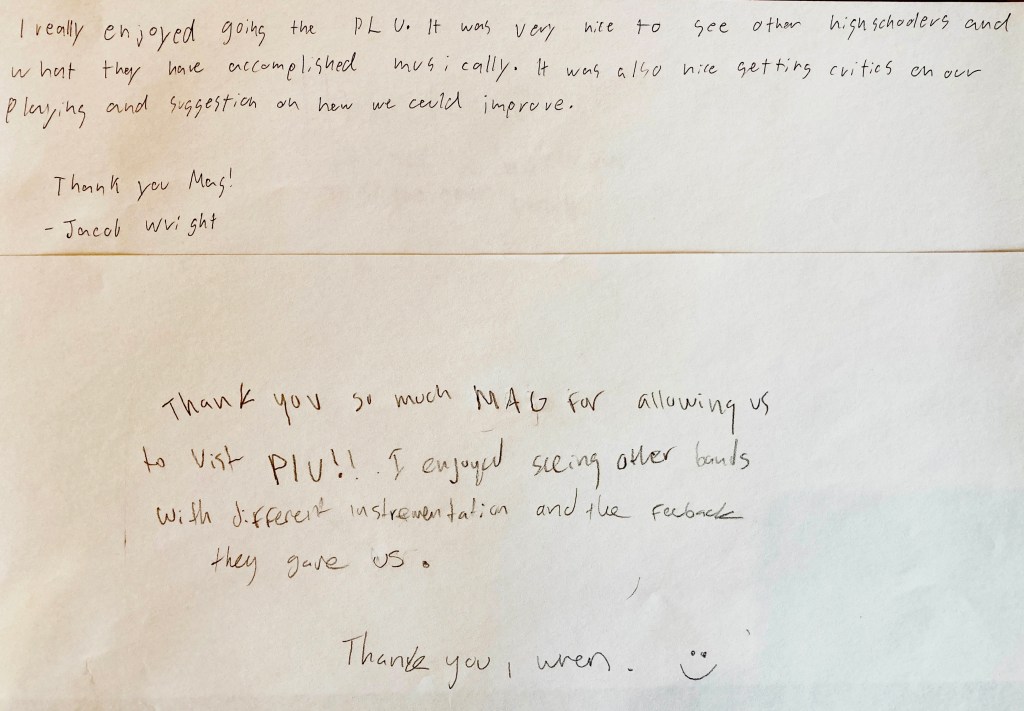 I really enjoyed going the PLU. It was very nice to see other highschoolers and
what they have accomplished musically. It was also nice getting critics on our
playing and suggestion on how we could improve.
Thank you Mag!
- Jacob Wright
Thank you so much MAG for allowing us
to Vist PLU!! I enjoyed seeing other bands
with different instrementation and the feeback
they gave us.
Thank you, wren. :)